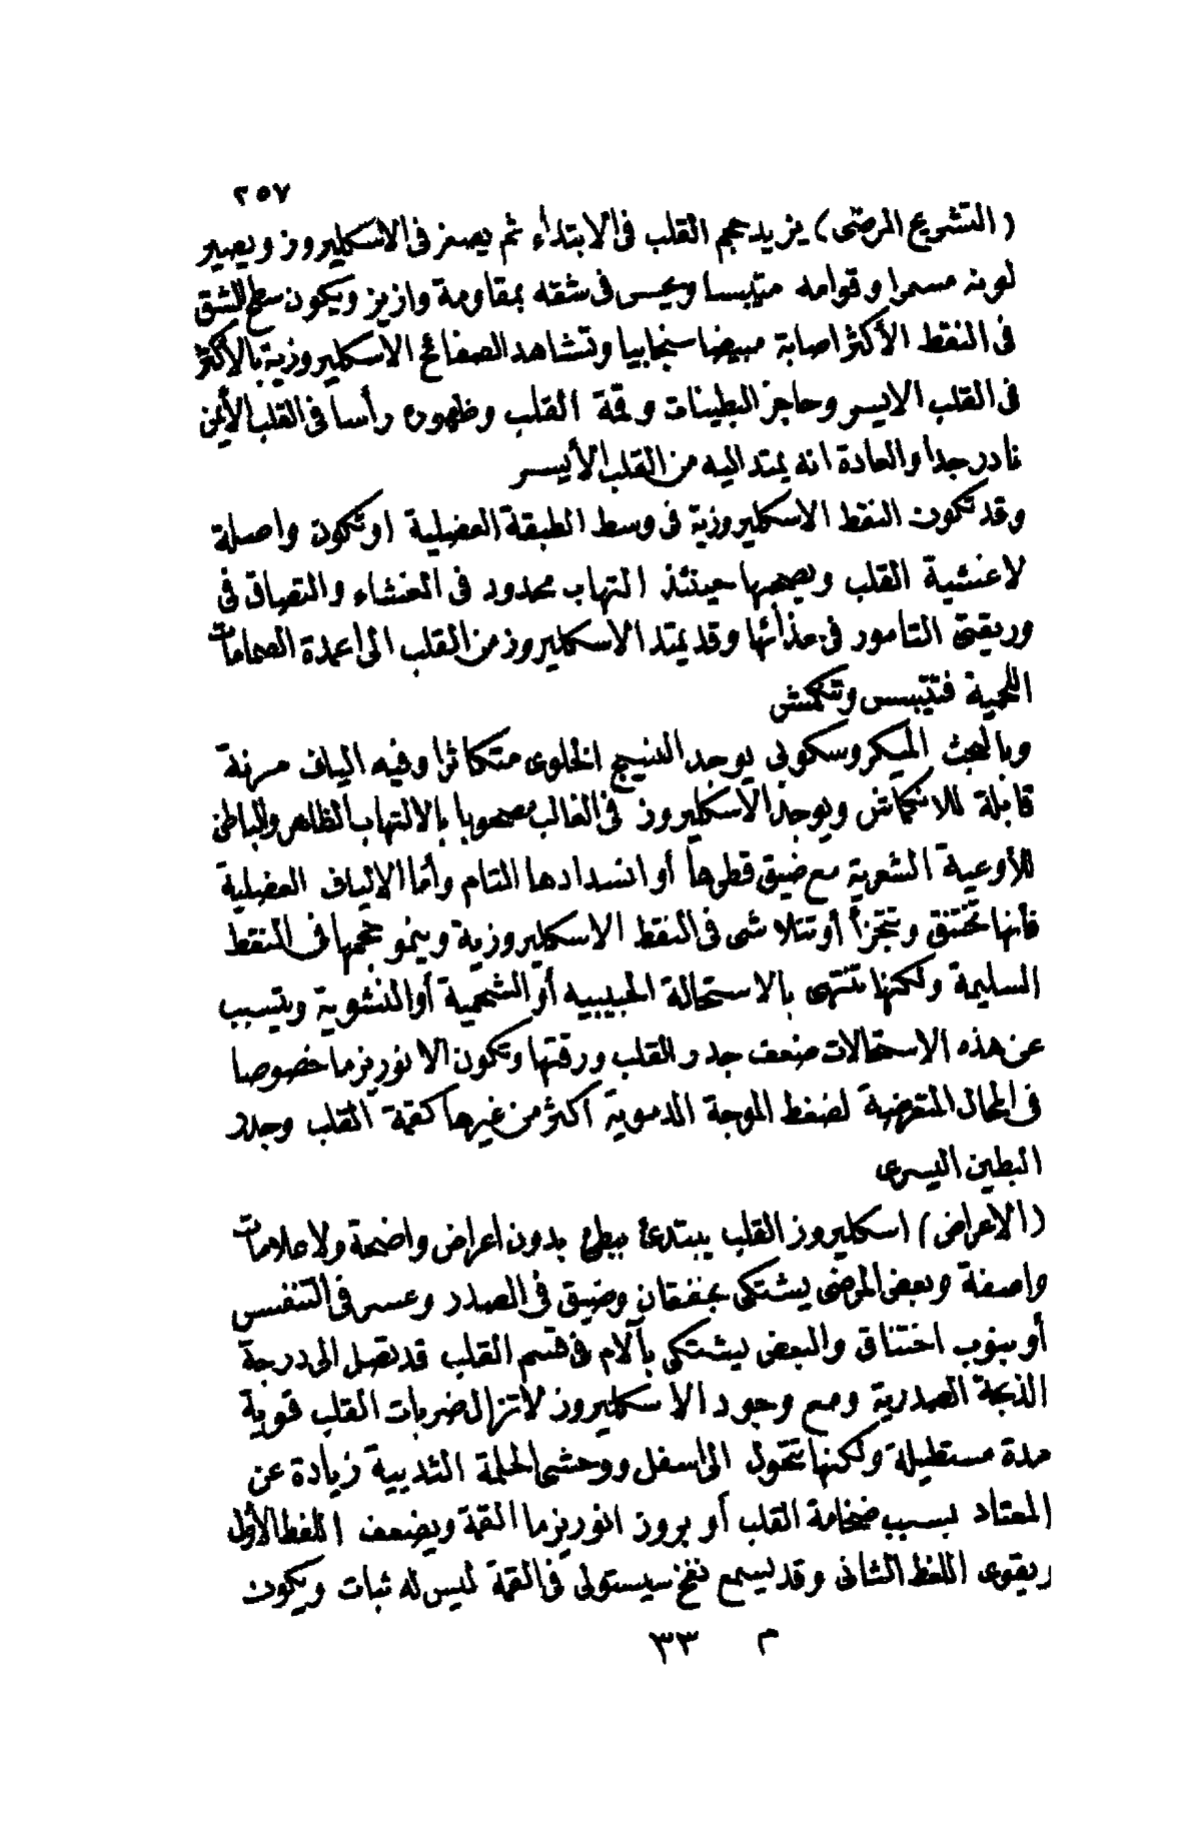 ٢٥٧
(التشريح المرضى) يزيد حجم القلب فى الابتداء ثم يصغر فى الاسكليروز ويصير
لونه مسمرا وقوامه متيبسا ويحس فى شقه بمقاومة وازيز ويكون سطح الشق
فى النقط الأكثر اصابة مبيضا سنجابيا وتشاهد الصفائح الاسكليروزية بالأكثر
فى القلب الايسر وحاجز البطينات وقمة القلب وظهوره رأسا فى القلب الأيمن
نادر جدا والعادة انه يمتد اليه من القلب الأيسر
وقد تكون النقط الاسكليروزية فى وسط الطبقة العضلية اوتكون واصلة
لاغشية القلب ويصحبها حينئذ التهاب محدود فى الغشاء والتصاق فى
وريقتى التامور فى حذائها وقد يمتد الاسكليروز من القلب الى اعمدة الصمامات
اللحمية فتتيبس وتنكمش
وبالبحث الميكروسكوبى يوجد النسيج الخلوى متكاثرا وفيه الياف مرنة
قابلة للانكماش ويوجد الاسكليروز فى الغالب مصحوبا بالالتهاب الظاهر والباطن
للأوعية الشعرية مع ضيق قطرها أو انسدادها التام وأما الالياف العضلية
فأنها تختنق وتتجزأ أو تتلاشى فى النقط الاسكليروزية وينمو حجمها فى النقط
السليمة ولكنها تنتهى بالاستحالة الحبيبيه أو الشحمية أو النشوية ويتسبب
عن هذه الاستحالات ضعف جدر القلب ورقتها وتكون الانوريزما خصوصا
فى المحال المتعرضة لضغط الموجة الدموية اكثر من غيرها كقمة القلب وجدر
البطين اليسرى
(الاعراض) اسكليروز القلب يبتدئ ببطئ بدون اعراض واضحة ولا علامات
واصفة وبعض المرضى يشتكى بخفقان وضيق فى الصدر وعسر فى التنفس
أو بنوب اختناق والبعض يشتكى بآلام فى قسم القلب قد تصل الى درجة
الذبحة الصدرية ومع وجود الاسكليروز لاتزال ضربات القلب قوية
مدة مستطيلة ولكنها تتحول الى اسفل ووحشى الحلمة الثديية زيادة عن
المعتاد بسبب ضخامة القلب أو بروز انوريزما القمة ويضعف اللغط الأول
ويقوى اللغط الثانى وقد يسمع نفخ سيستولى فى القمة ليس له ثبات ويكون
م ٣٣